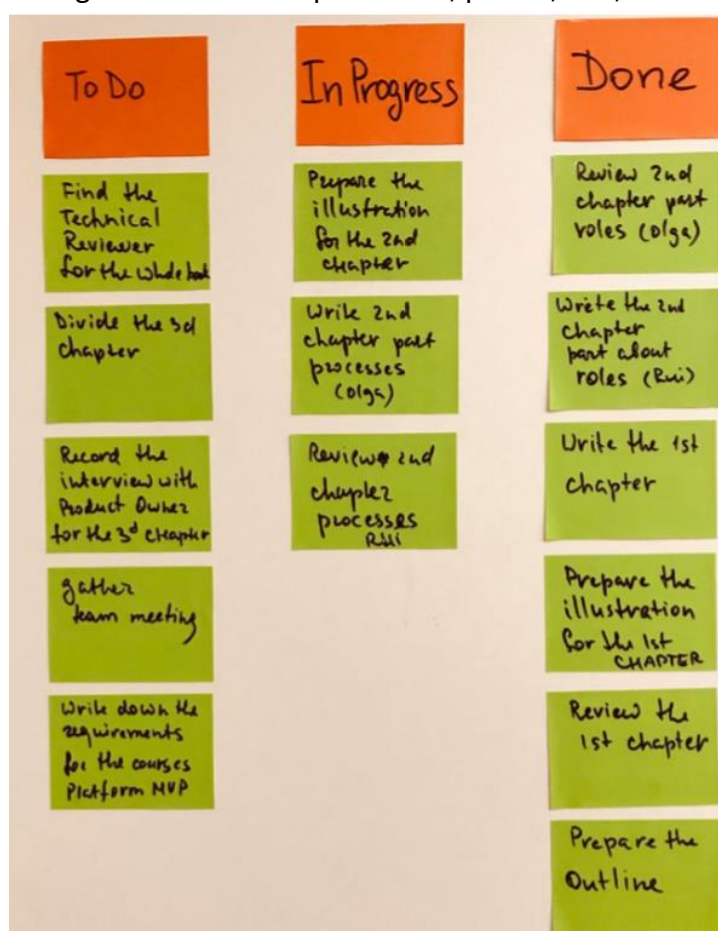 To Do
Find the
Technical
Reviewer
for the whole book
Divide the 3d
chapter
Record the
interview with
Product Owner
for the 3d chapter
gather
team meeting
Write down the
requirements
for the courses
Platform MVP
In Progress
Prepare the
illustration
for the 2nd
chapter
Write 2nd
chapter part
processes
(Olga)
Review 2nd
chapter
processes
Rui
Done
Review 2nd
chapter part
roles (Olga)
Wrete the 2nd
chapter
part about
roles (Rui)
Write the 1st
chapter
Prepare the
illustration
for the 1st
CHAPTER
Review the
1st chapter
Prepare the
Outline